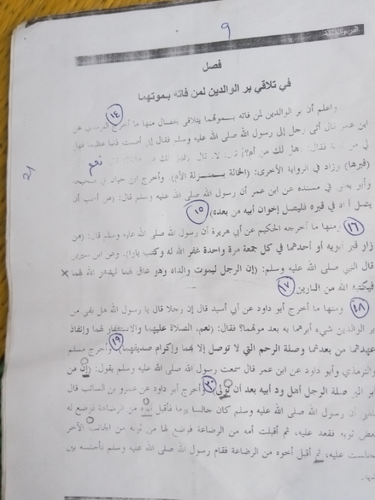 ٩
فصل
في تلاقي بر الوالدين لمن فاته بموتهما
واعلم أن بر الوالدين لمن فاته بموتهما يتلاقى بخصال منها ما أخرج الترمذي عن
ابن عمر قال أتى رجل إلى رسول الله صلى الله عليه وسلم فقال إني أصبت ذنبا عظيما فهل
لي من توبة فقال: هل لك من أم؟ قال لا، قال
نعم
فبرها) وزاد في الرواية الأخرى: (الخالة بمنزلة الأم). وأخرج ابن حبان في صحيحه
وأبو يعلى في مسنده عن ابن عمر أن رسول الله صلى الله عليه وسلم قال: (من أحب أن
يصل أباه في قبره فليصل إخوان أبيه من بعده)
ومنها ما أخرجه الحكيم عن أبي هريرة أن رسول الله صلى الله عليه وسلم قال: (من
زار قبر أبويه أو أحدهما في كل جمعة مرة واحدة غفر الله له وكتب بارا). وعن ابن سيرين
قال النبي صلى الله عليه وسلم: (إن الرجل ليموت والداه وهو عاق لهما ليدعو الله لهما
فيكتبه الله من البارين
ومنها ما أخرج أبو داود عن أبي أسيد قال إن رجلا قال يا رسول الله هل بقي من
بر الوالدين شيء أبرهما به بعد موتهما؟ فقال: (نعم، الصلاة عليهما والاستغفار لهما وإنفاذ
عهدهما من بعدهما وصلة الرحم التي لا توصل إلا بهما وإكرام صديقهما) وأخرج مسلم
والترمذي وأبو داود عن ابن عمر قال سمعت رسول الله صلى الله عليه وسلم يقول: (إن من
أبر البر وصلة الرجل أهل ود أبيه بعد أن تولى) وأخرج أبو داود عن عمرو بن السائب قال
أن رسول الله صلى الله عليه وسلم كان جالسا يوما فأقبل أبوه من الرضاعة فوضع له
بعض ثوبه فقعد عليه، ثم أقبلت أمه من الرضاعة فوضع لها من ثوبه من الجانب الآخر
فجلست عليه، ثم أقبل أخوه من الرضاعة فقام رسول الله صلى الله عليه وسلم فأجلسه بين